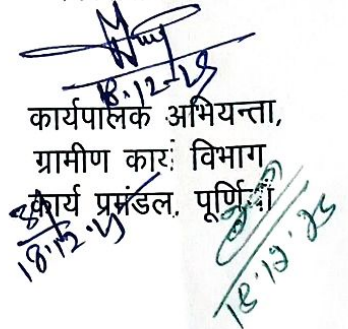 18.12.25
कार्यपालक अभियन्ता,
ग्रामीण कार्य विभाग
कार्य प्रमंडल, पूर्णिया
18.12.25
18.12.25